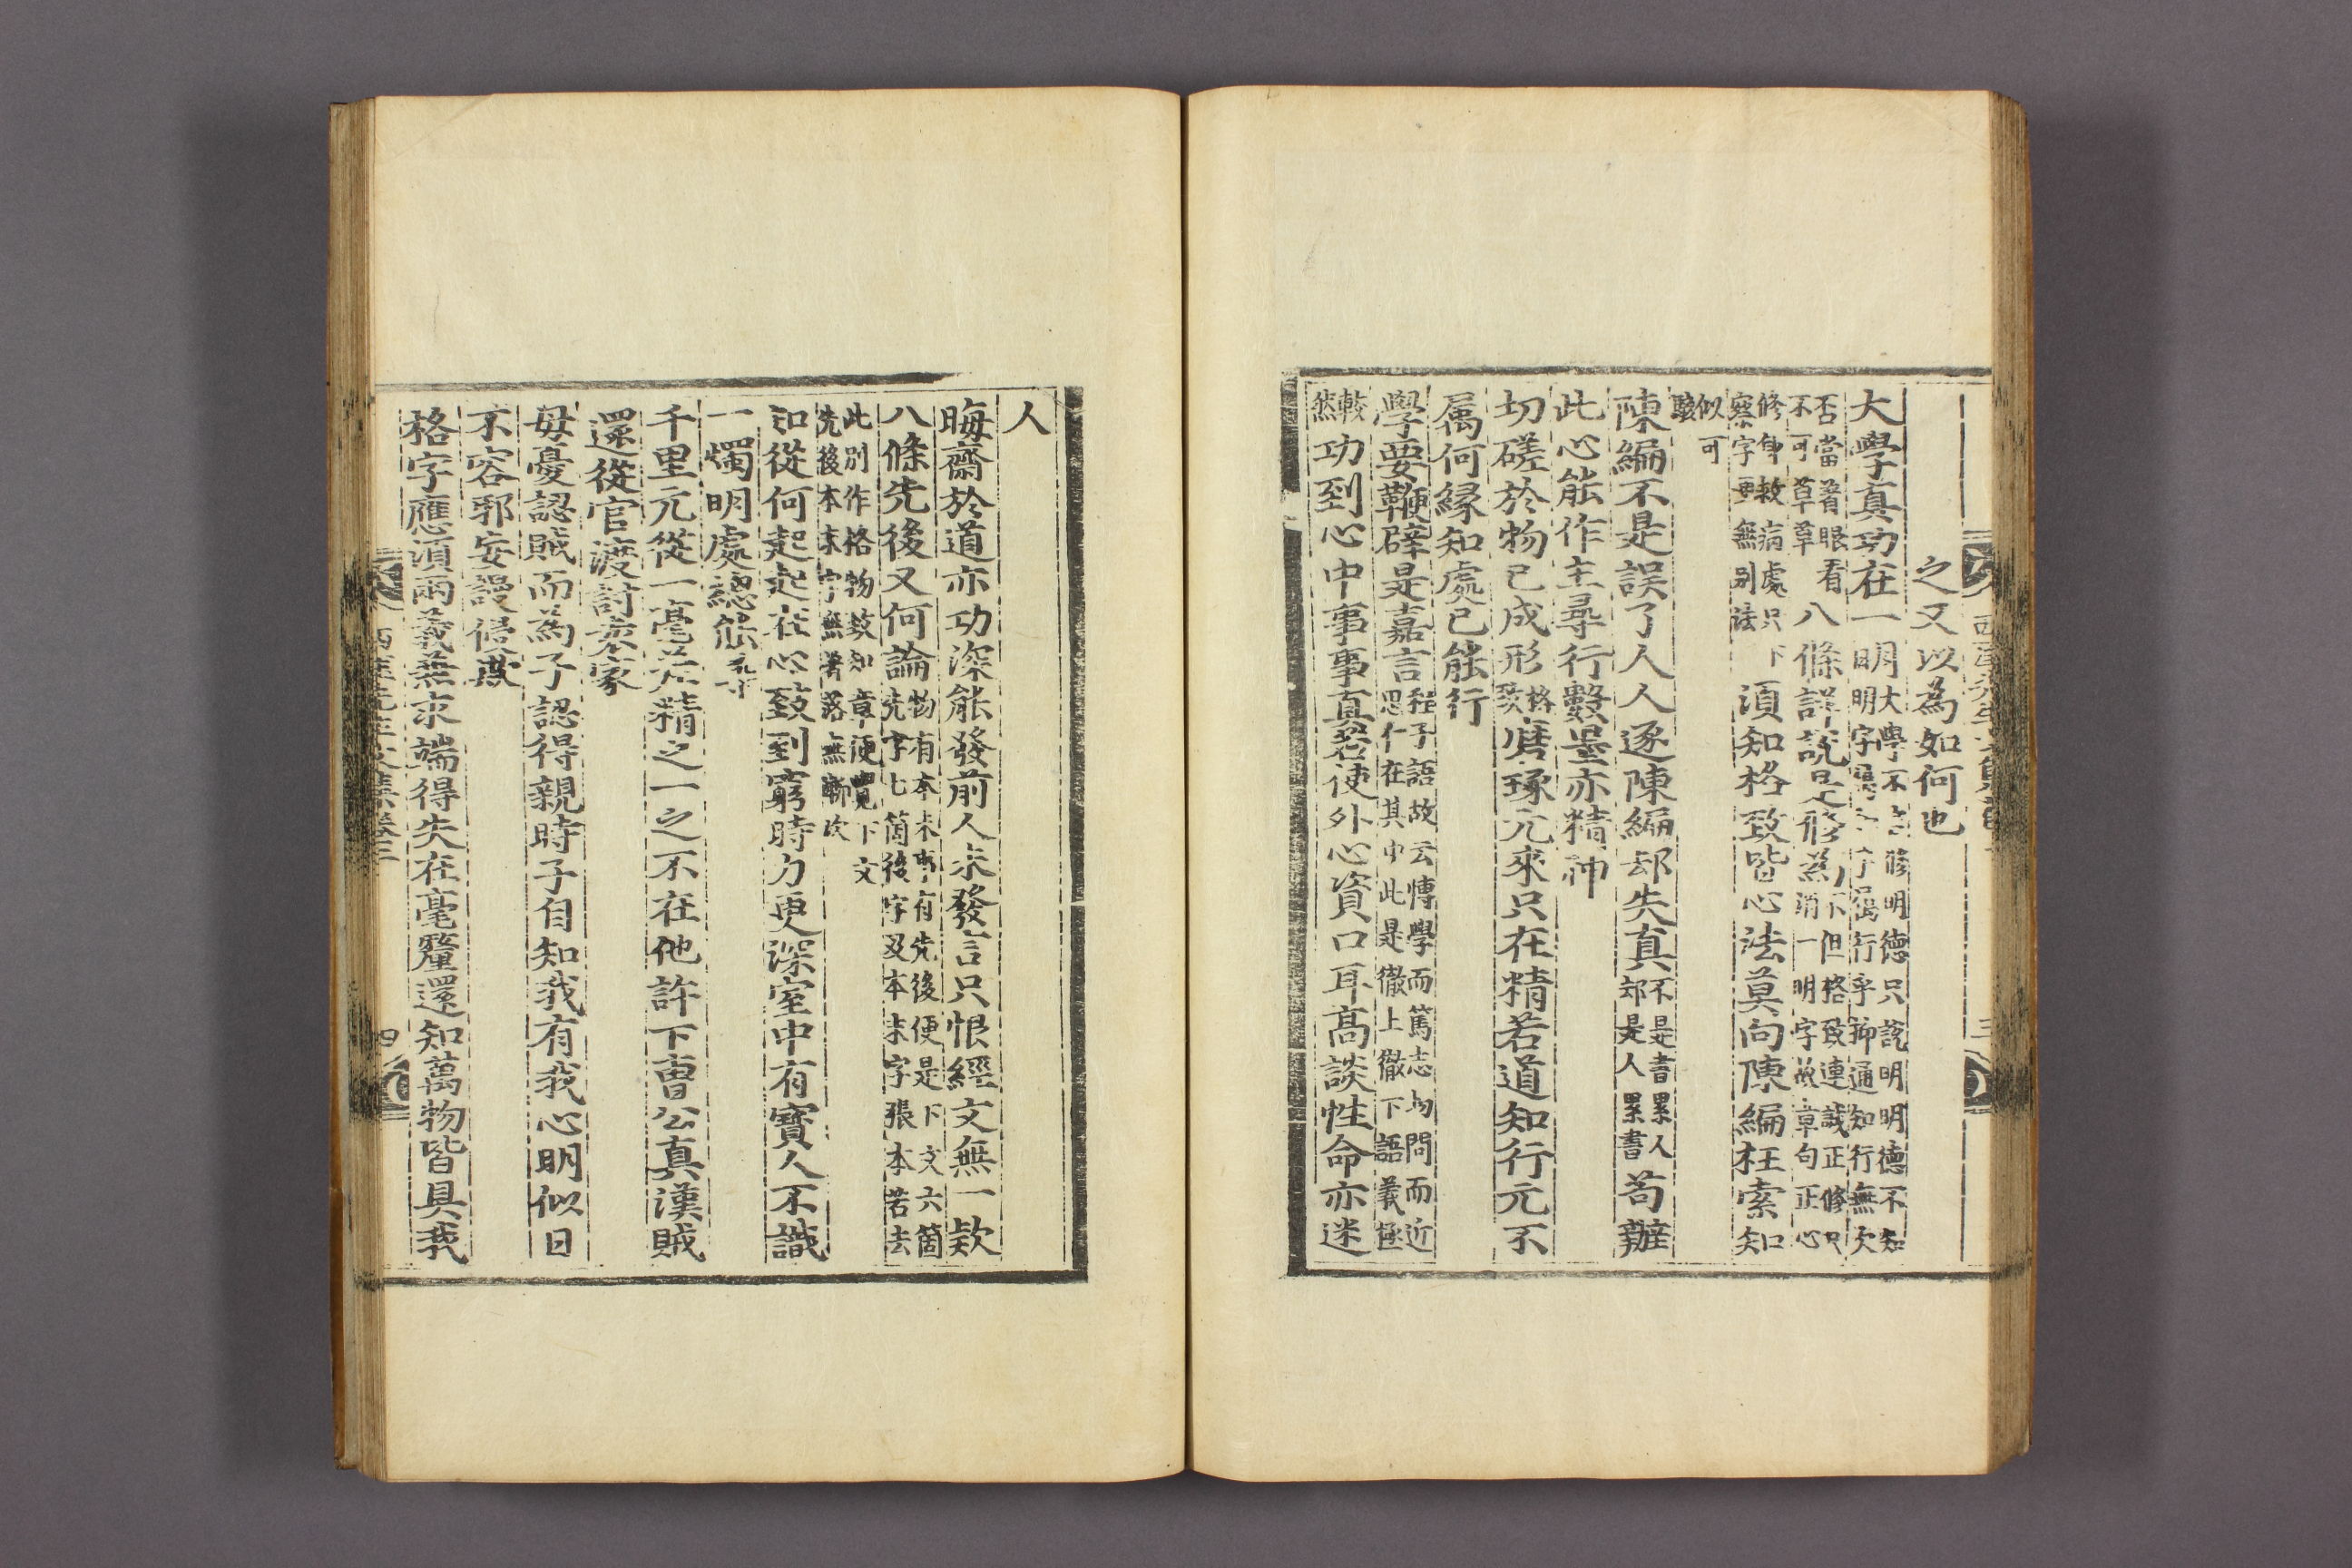 之又以為如何也
大學真功在一明大學不言修明德只說明明德不知
明字⋯行乎抑通知行無欠
否當着眼看
不可草草八條詳說是修為不但格致連誠正修只
消一明字故章句正心
修身敕病處只下
察字要無別法須知格致皆心法莫向陳編枉索知
似可
駭
陳編不是誤了人人逐陳編却失真不是書累人
却是人累書苟難
此心能作主尋行數墨亦精神
切磋於物已成形格
致磨琢元來只在精若道知行元不
属何緣知處已能行
學要鞭辟是嘉言程子語故云博學而篤志切問而近
思仁在其中此是徹上徹下語義極
較
然功到心中事事真若使外心資口耳高談性命亦迷
人
晦齋於道亦功深能發前人未發言只恨經文無一欵
八條先後又何論物有本末事有先後便是下文六箇
先字七箇後字及本末字張本若去
此別作格物致知章便覺下文
先後本末字無著落無漸次
知從何起起在心致到窮時力更深室中有寶人不識
一燭明處總能尋
千里元從一毫差精之一之不在他許下曹公真漢賊
還從官渡討袁家
毋憂認賊而為子認得親時子自知我有我心明似日
不容邪妄謾侵欺
格字應須兩義兼求端得失在毫釐還知萬物皆具我
西厓先生文集卷三
四
三